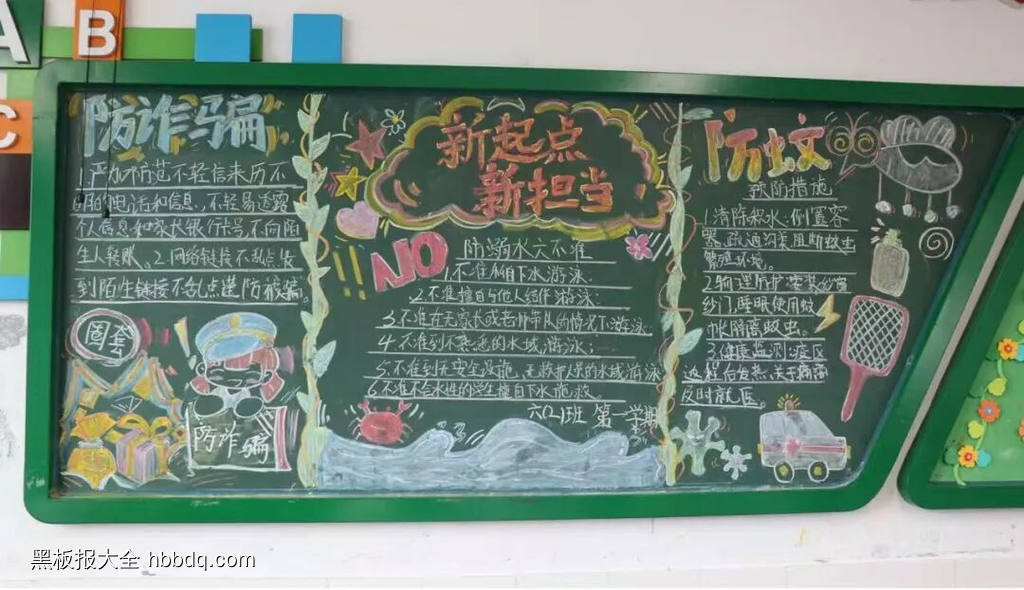 A
B
C
防诈骗
1.严加防范不轻信来历不
明的电话和信息、不轻易透露
个人信息和家长银行卡号,不向陌
生人转账、2.网络链接不乱点收
到陌生链接不乱点谨防被骗。
圈套
防诈骗
新起点
新担当
NO
防溺水六不准
1.不准私自下水游泳;
2.不准擅自与他人结伴游泳;
3.不准在无家长或老师带队的情况下游泳
4.不准到不熟悉的水域游泳;
5.不准到无安全设施、无救护人员的水域游泳
6.不准不会水性的学生擅自下水施救。
六(2)班 第一学期
防蚊
预防措施
1清除积水:倒置容
器,疏通沟渠,阻断蚊虫
繁殖环境。
2物理防护:安装纱窗
纱门,睡眠使用蚊
帐隔离蚊虫。
3.健康监测:疫区
返程后
及时就医。
黑板报大全 hbbdq.com